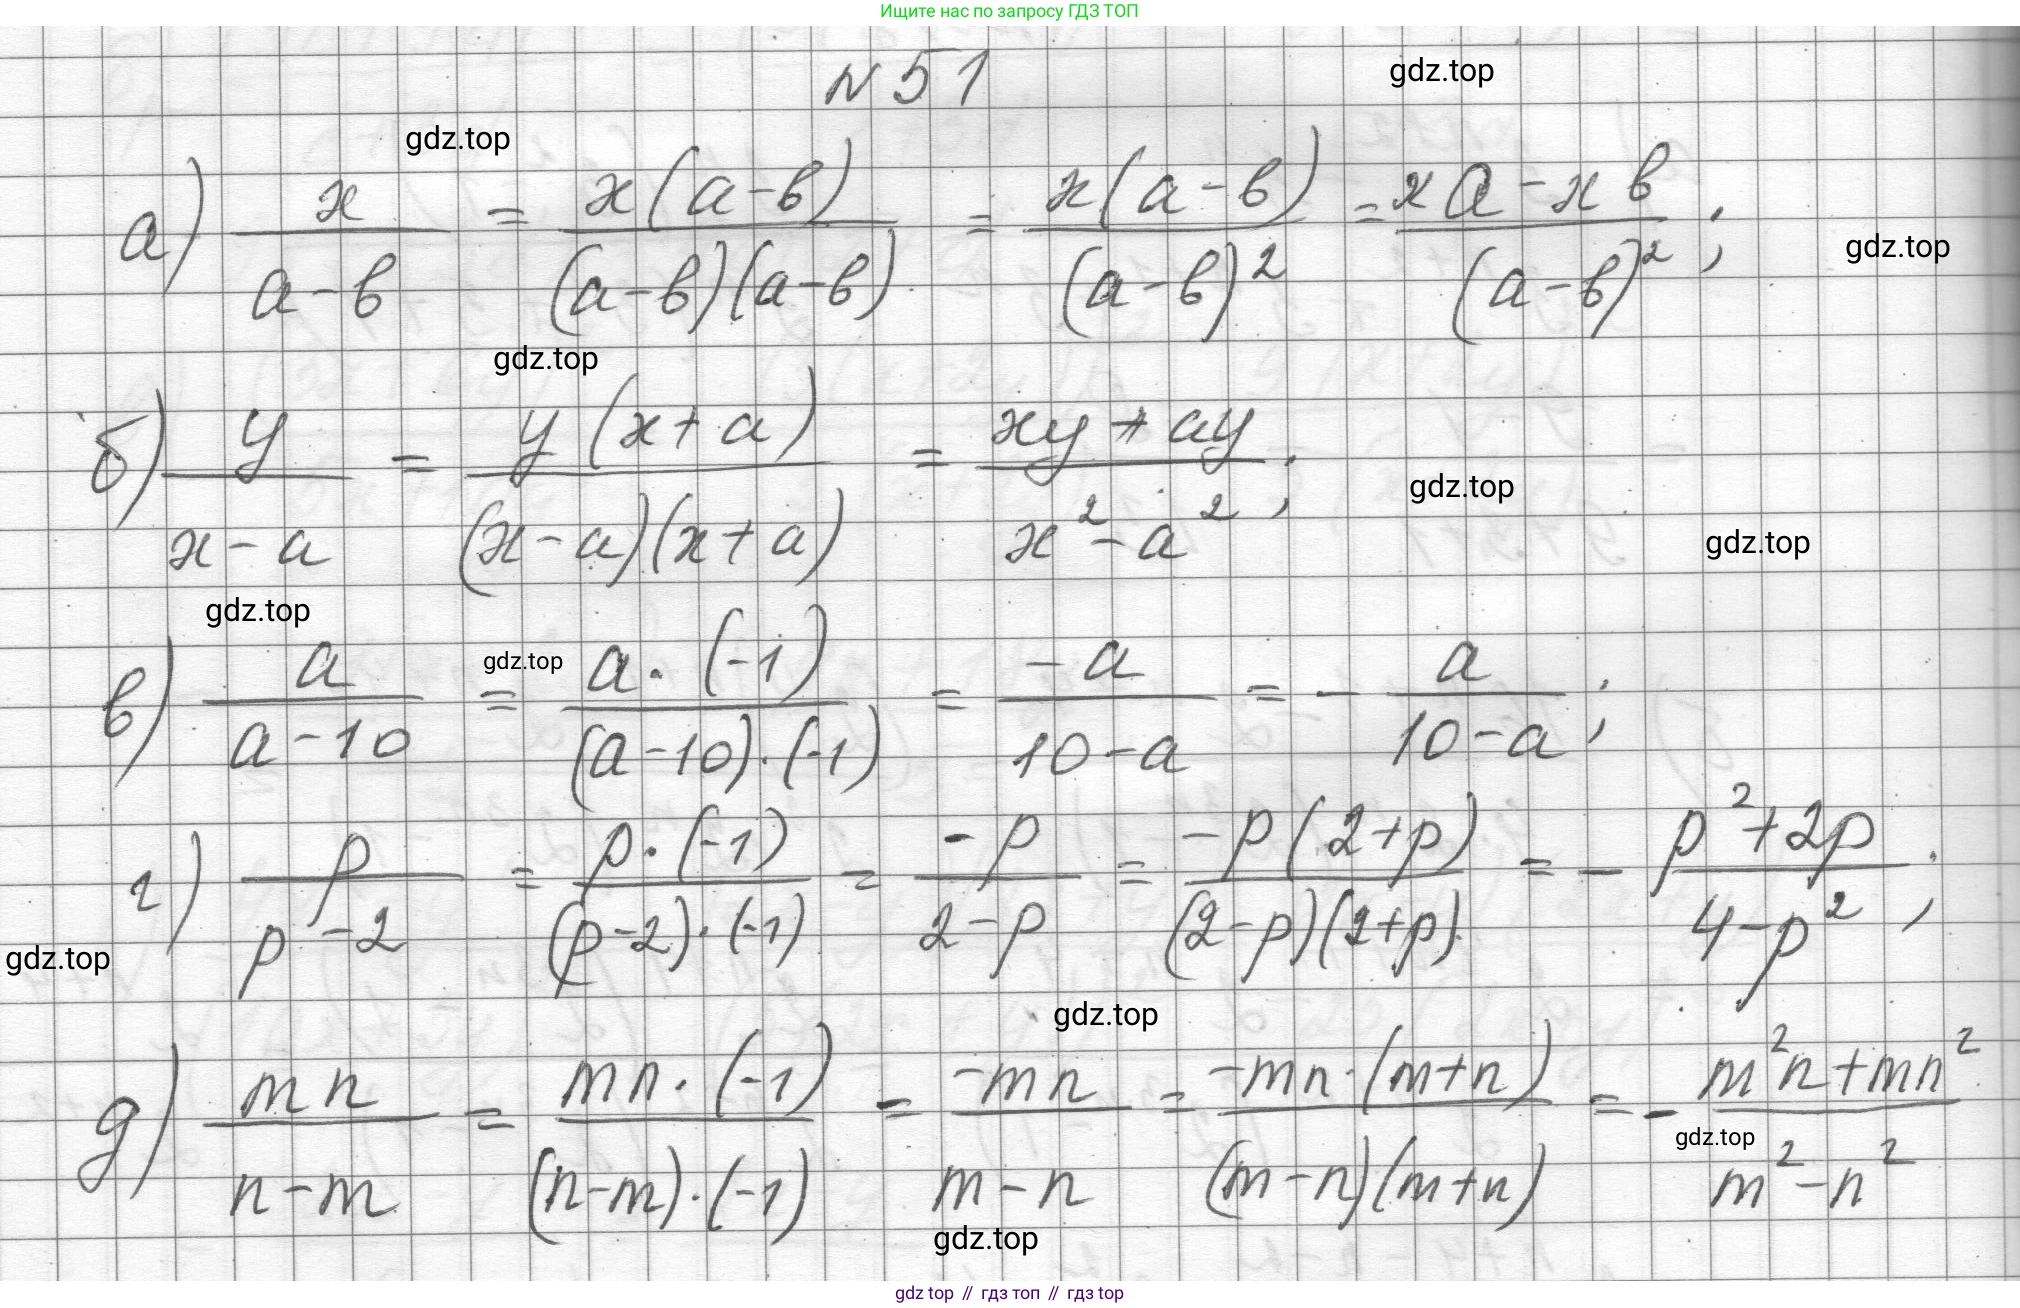 Ищите нас по запросу ГДЗ ТОП
N 51
gdz.top
gdz.top
а) x/(a-b) = x(a-b)/((a-b)(a-b)) = x(a-b)/(a-b)² = (xa-xb)/(a-b)²;
gdz.top
gdz.top
б) y/(x-a) = y(x+a)/((x-a)(x+a)) = (xy+ay)/(x²-a²);
gdz.top
gdz.top
gdz.top
gdz.top
в) a/(a-10) = a·(-1)/((a-10)·(-1)) = -a/(10-a) = - a/(10-a);
г) p/(p-2) = p·(-1)/((p-2)·(-1)) = -p/(2-p) = -p(2+p)/((2-p)(2+p)) = - (p²+2p)/(4-p²);
gdz.top
gdz.top
д) mn/(n-m) = mn·(-1)/((n-m)·(-1)) = -mn/(m-n) = -mn·(m+n)/((m-n)(m+n)) = - (m²n+mn²)/(m²-n²)
gdz.top
gdz.top
gdz top // гдз топ // гдз top